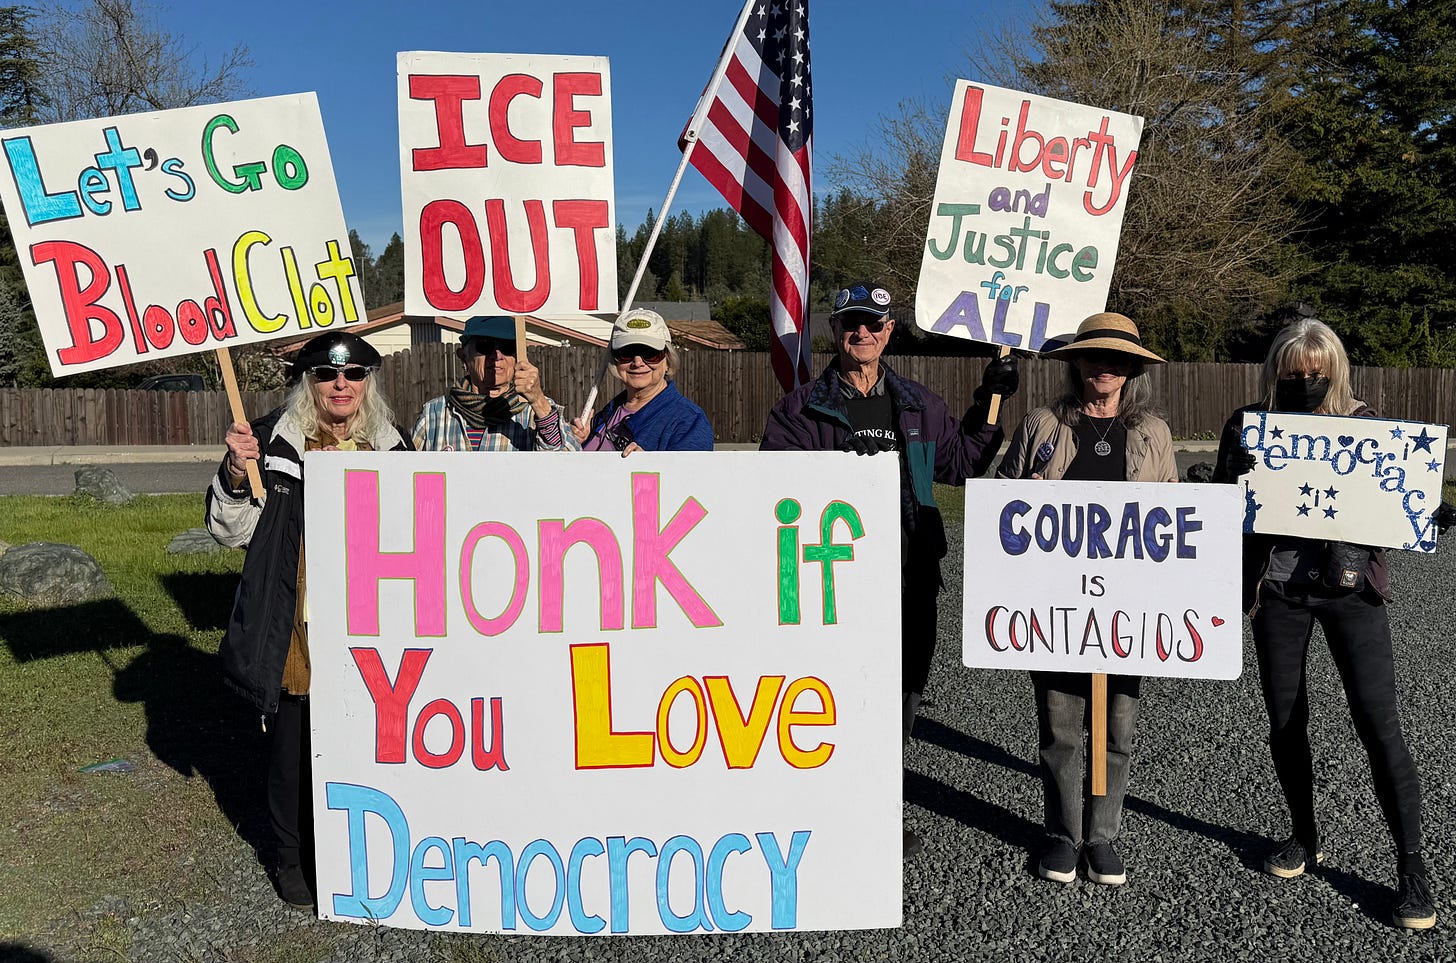 Let's Go
Blood Clot
ICE
OUT
Liberty
and
Justice
for
ALL
Honk if
You Love
Democracy
COURAGE
IS
CONTAGIOS
democracy!